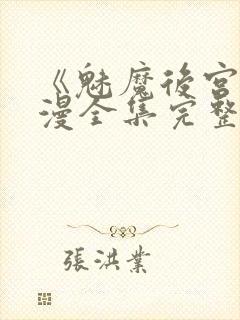 《魅魔後宮
漫全集完整
張洪業